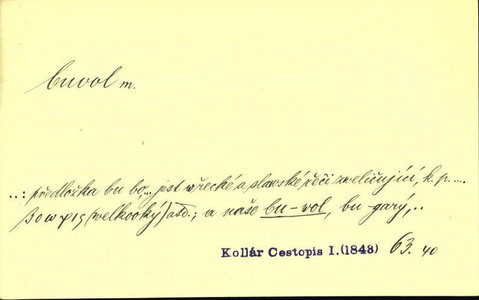 buvol m.
..: předložka bu bo,.. jest w řecké a slawské řeči zweličující, k. p. ....
βοωπις (welkooký) atd.; a naše bu-wol, bu-garý,..
Kollár Cestopis I.(1843) 63. 40